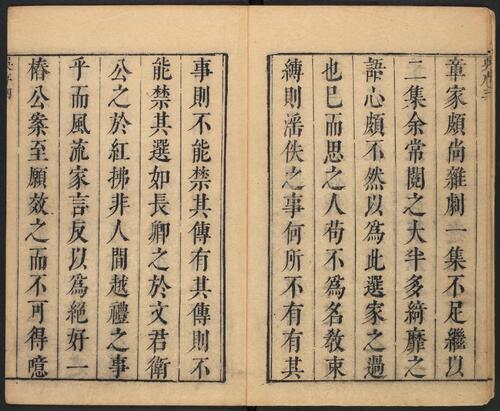 章家頗尚雜劇一集不足繼以
二集余常閱之大半多綺靡之
語心頗不然以為此選家之過
也已而思之人苟不為名教束
縛則滛佚之事何所不有有其
事則不能禁其傳有其傳則不
能禁其選如長卿之於文君衛
公之於紅拂非人間越禮之事
乎而風流家言反以為絕好一
樁公案至願效之而不可得噫